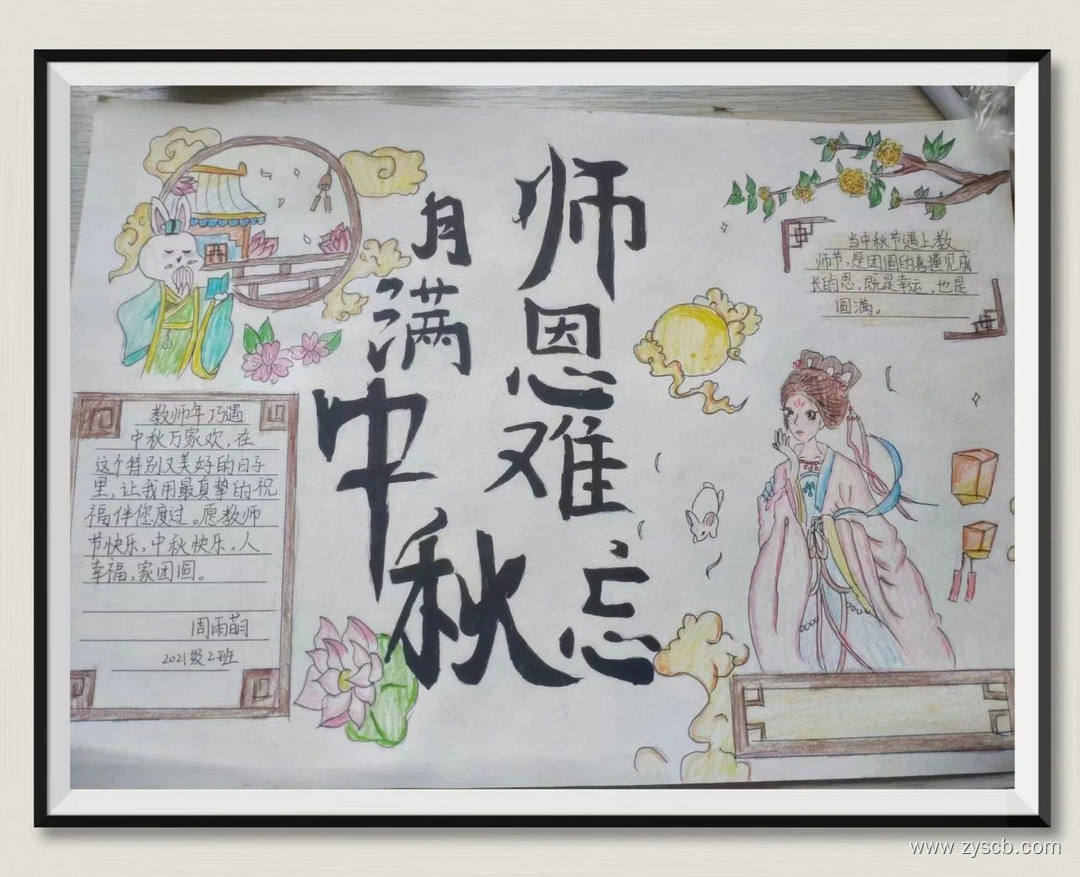 师恩难忘
月满中秋
当中秋节遇上教
师节,是团圆的喜撞见成
长的恩,既是幸运,也是
圆满。
教师年巧遇
中秋万家欢,在
这个特别又美好的日子
里,让我用最真挚的祝
福伴您度过。愿教师
节快乐,中秋快乐,人
幸福,家团圆。
周雨萌
2021级2班
www.zyscb.com